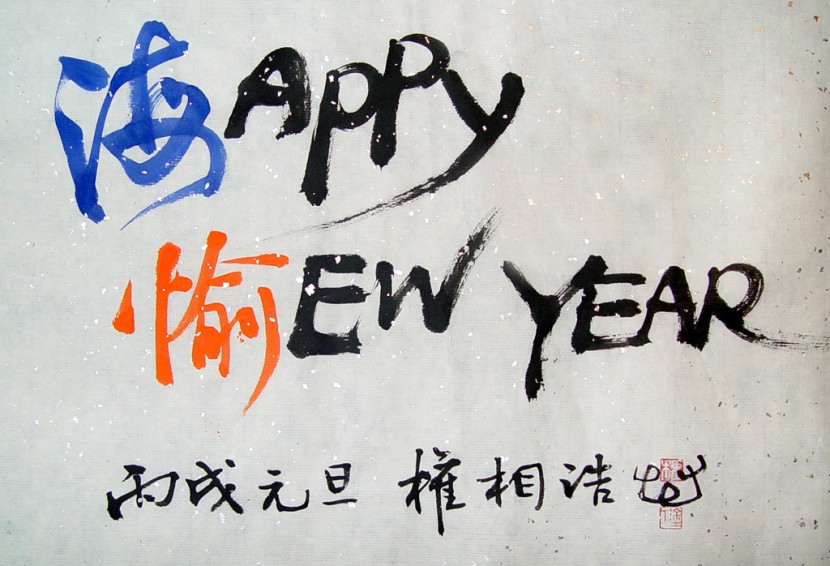 海APPY
愉EW YEAR
丙戌元旦 權相浩